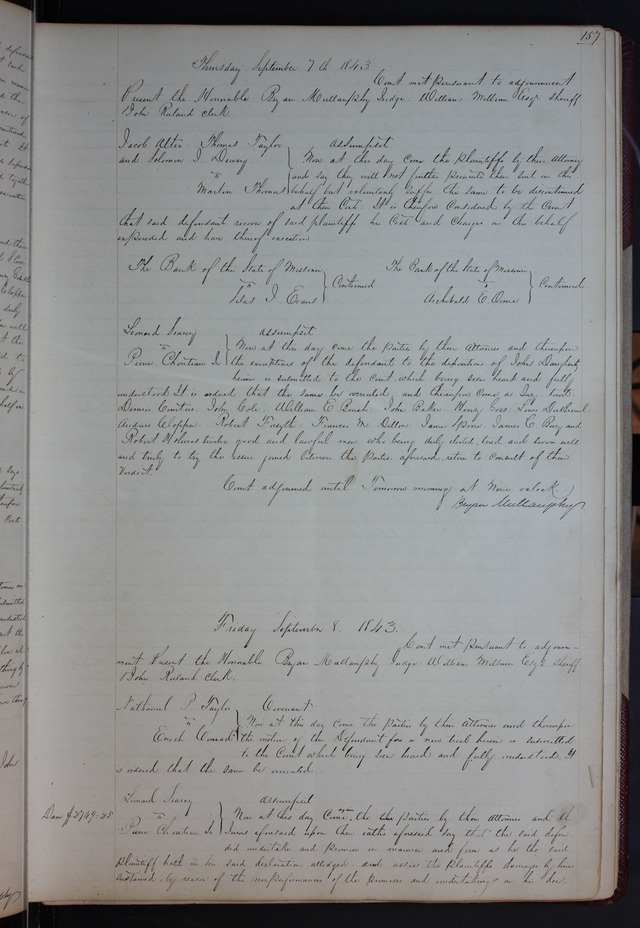 187
Thursday September 7th 1843
Court met pursuant to adjournment
Present the Honorable Bryan Mullanphy Judge William Milburn Esqr Sheriff
John Ruland clerk.
Jacob Alter Thomas Taylor assumpsit
and Solomon J. Dewey Now at this day come the plaintiffs by their Attorney
vs and say they will not further prosecute their suit in this
Marlin Thomas behalf but voluntarily suffer the same to be discontinued
at their Cost. It is therefore Considered by the Court
that said defendant recover of said plaintiffs his Cost and Charges in this behalf
expended and have thereof execution
The Bank of the State of Missouri The Bank of the State of Missouri
vs Continued vs Continued
Silas J. Evans Archibald E Orme
Leonard Searcy assumpsit
vs Now at this day come the parties by their Attornies and thereupon
Pierre Chouteau Jr. the exceptions of the defendant to the deposition of John Dougherty
herein is submitted to the Court, which being seen heard and fully
understood It is ordered that the same be overruled, and thereupon come a Jury to wit:
John Cole William E. Bush John Baker Henry
Robert Forsyth Francis M. Dillon James Spore James E. Bury and
Robert Holmes twelve good and lawful men who being duly elected, tried and sworn well
and truly to try the issue joined between the parties aforesaid, retire to consult of their
Verdict.
Court adjourned until Tomorrow morning at Nine oclock
Bryan Mullanphy
Friday September 8. 1843.
Court met pursuant to adjourn-
ment Present the Honorable Bryan Mullanphy Judge William Milburn Esqr Sheriff
John Ruland Clerk.
Nathaniel P. Taylor Covenant
vs Now at this day come the parties by their Attornies and thereupon
Enoch Conrad the motion of the Defendant for a new trial herein is submitted
to the Court which being seen heard and fully understood, It
is ordered that the same be overruled
Leonard Searcy assumpsit
Dam $3749.25 vs Now at this day Come again the parties by their Attornies and the
Pierre Chouteau Jr. Jurors aforesaid upon their oaths aforesaid say that the said defen-
did undertake and promise in manner and form as he the said
plaintiff hath in his said declaration alledged. and assess the plaintiffs damages by him
sustained by reason of the nonperformance of the promises and undertakings in the dec.